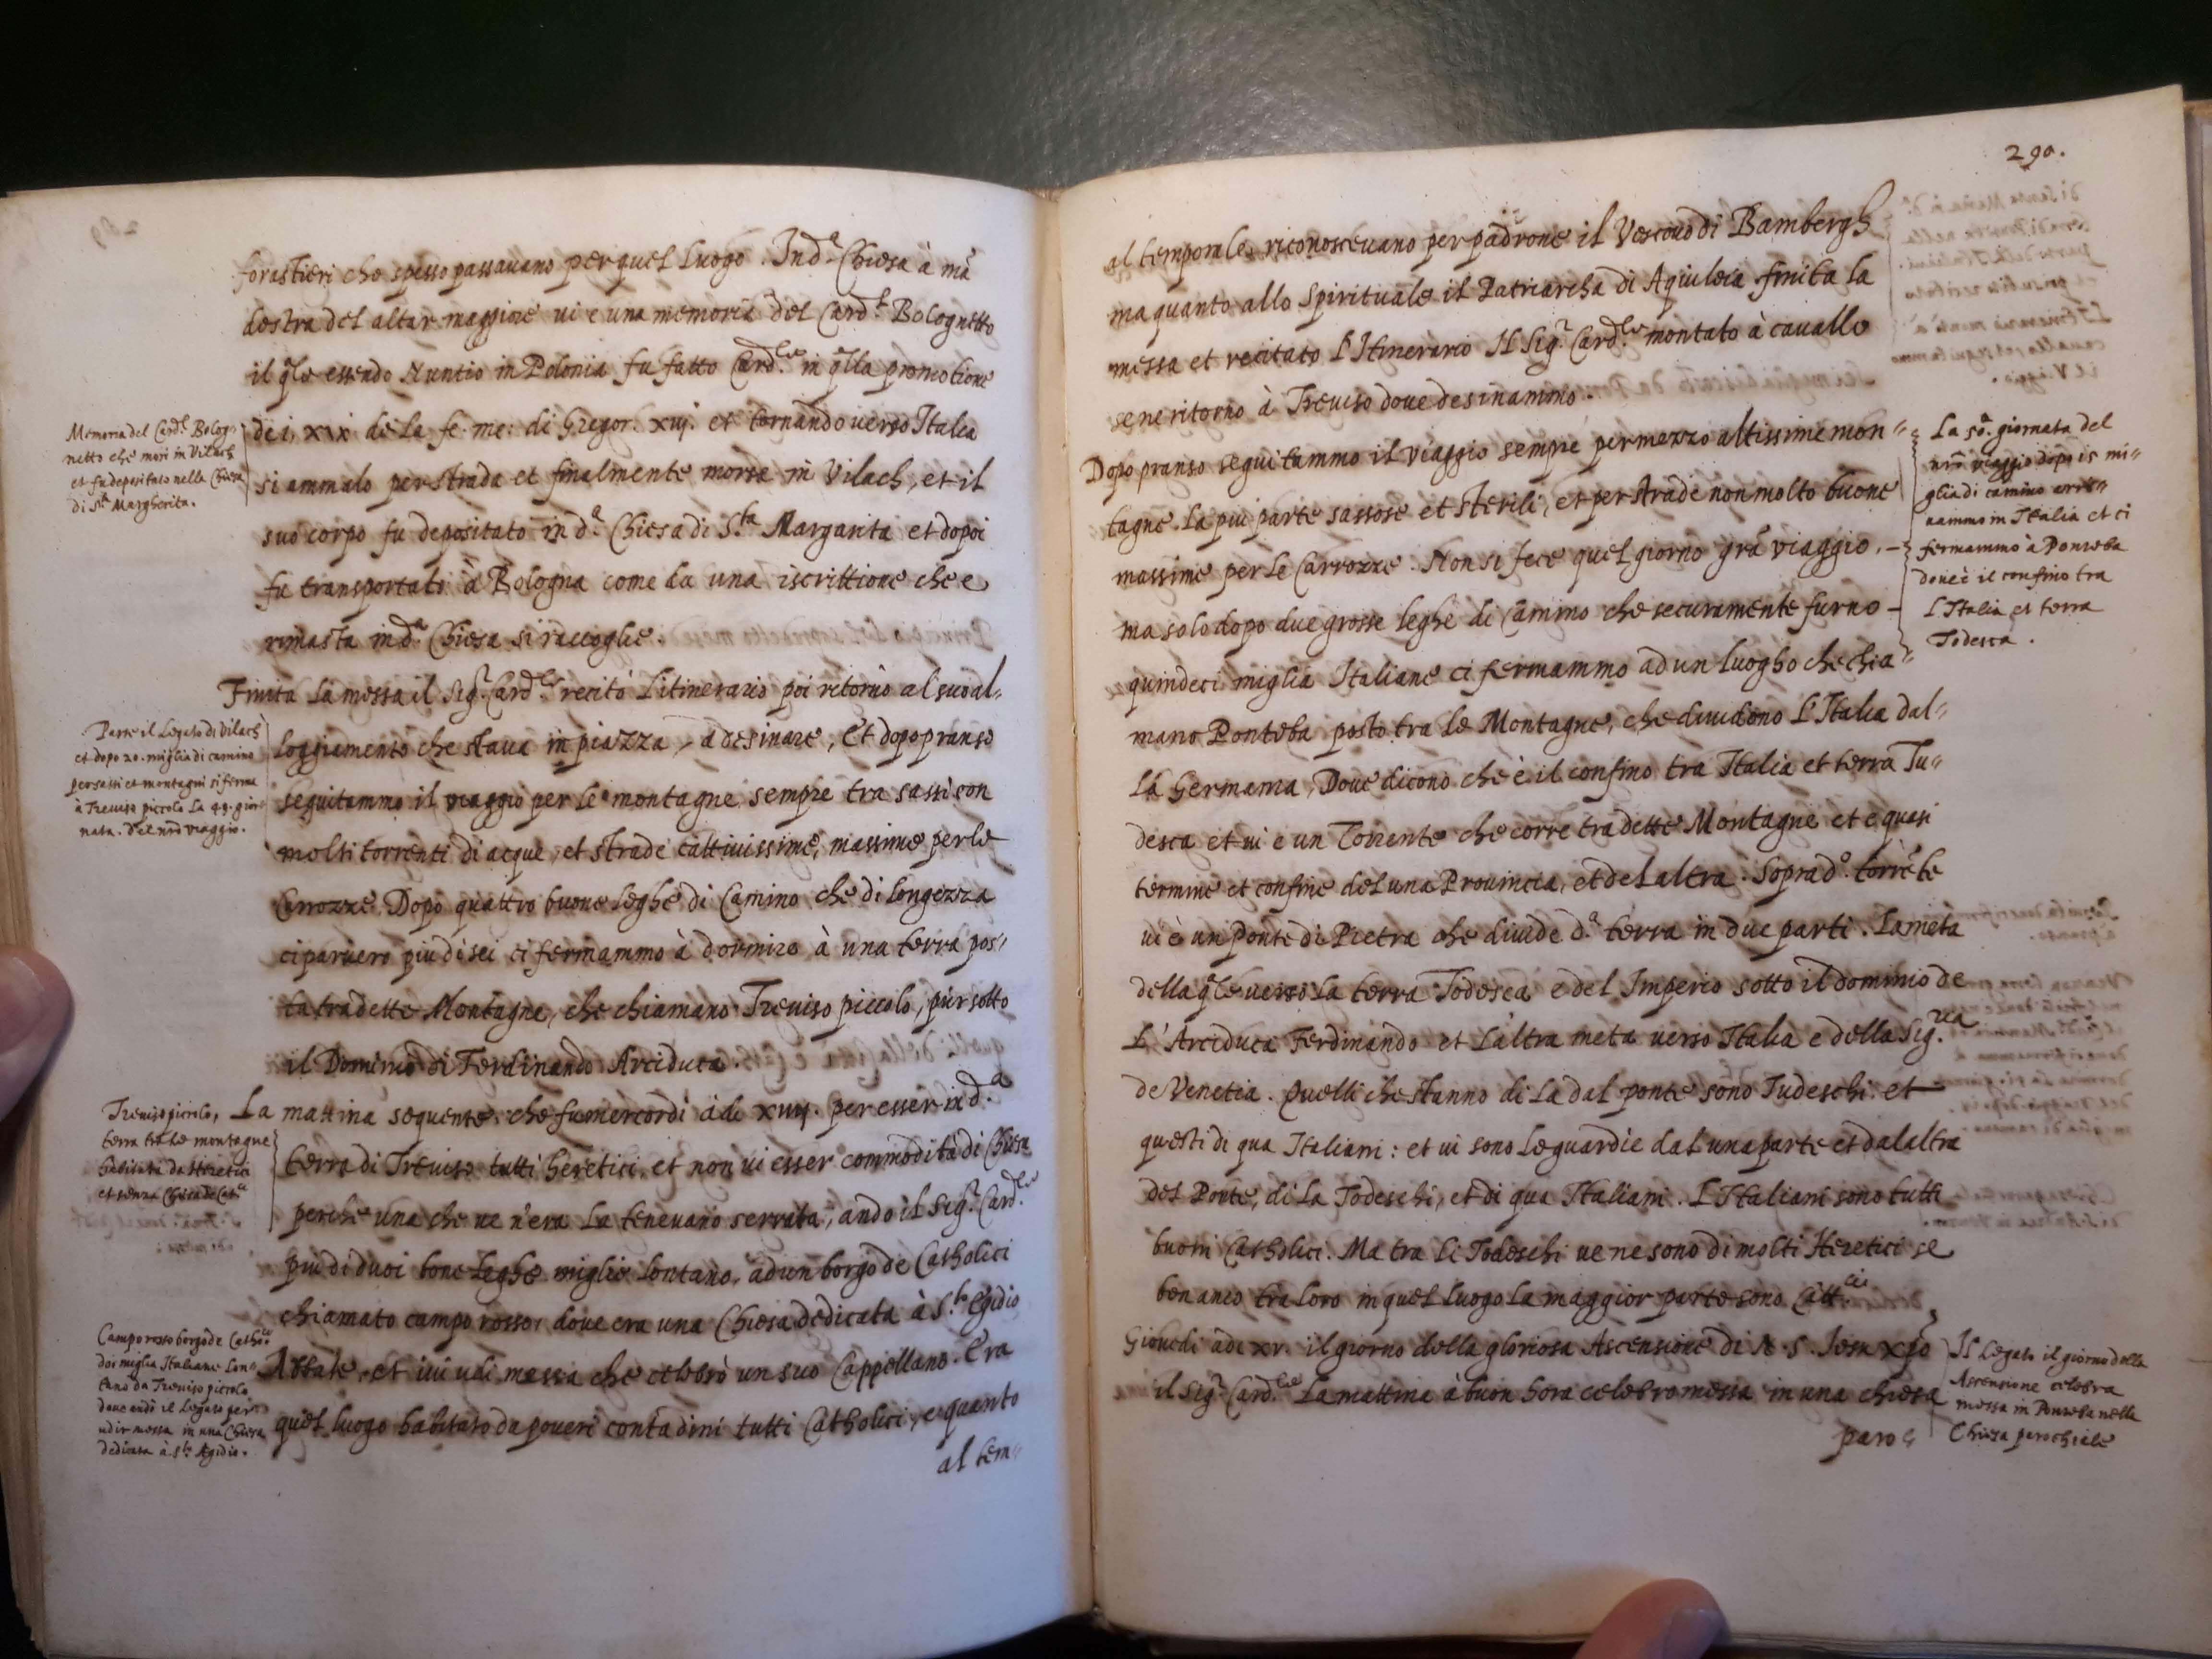 forastieri che spesso passauano per quel luogo. In d.ª Chiesa à mã
destra del altar maggiore ui e una memoria del Card.l Bolognetto
il qle essendo Nuntio in Polonia fu fatto Card.le in qlla promotione
de i xix de la fe: me: di Gregor. xiij. et tornando uerso Italia
si ammalo per strada et finalmente morse in Vilach, et il
suo corpo fu depositato in d.ª Chiesa di S.ta Margarita et dopoi
fu transportato à Bologna come da una iscrittione che e
rimasta in d.ª Chiesa si raccoglie.
Memoria del Card.l Bolog=
netto che morì in Vilach
et fu depositato nella Chiesa
di S.ta Margherita.
Finita la messa il Sig.r Card.le recitò l'itinerario poi ritornò al suo al=
loggiamento che staua in piazza, a desinare, Et dopo pranso
seguitammo il viaggio per le montagne sempre tra sassi con
molti torrenti di acque, et strade cattiuissime, massime per le
Carrozze. Dopo quattro buone leghe di Camino che di longezza
ci paruero piu di sei ci fermammo à dormire à una terra pos=
ta tra dette Montagne, che chiamano Treuiso piccolo, pur sotto
il Dominio di Ferdinando Arciduca.
Parte il Legato di Vilach
et dopo 20. miglia di camino
per sassi et montagni si ferma
à Treuiso piccolo la 49. gior=
nata. del nrõ viaggio.
La mattina sequente, che fu mercordi à di xiiij. per esser in d.ª
terra di Treuiso tutti heretici, et non ui esser commodità di Chiesa
perche una che ue n'era la teneuano serrata, andò il Sig.r Card.le
più di duoi bone leghe miglie lontano, ad un borgo de Catholici
chiamato campo rosso, doue era una Chiesa dedicata à S.to Egidio
Abbate, et iui udi messa che celebrò un suo Cappellano. Era
quel luogo habitato da poueri contadini tutti Catholici, e quanto
al tem=
Treuiso piccolo,
terra tra le montagne
habitata da Heretici
et senza Chiesa de Cat.ci
Campo rosso borgo de Cath.ci
doi miglia Italiane lon=
tano da Treuiso piccolo
doue andò il Legato per
udir messa in una Chiesa
dedicata à S.to Egidio.
290.
al temporale, riconosceuano per padrone il Vescouo di Bambergh
ma quanto allo spirituale il Patriarcha di Aquileia finita la
messa et recitato l'Itinerario Il Sig.r Card.le montato à cauallo
se ne ritorno à Treuiso doue desinammo.
Dopo pranso seguitammo il viaggio sempre per mezzo altissime mon=
tagne. la più parte sassose et sterili, et per strade non molto buone
massime per le Carrozze. Non si fece quel giorno grã viaggio,
ma solo dopo due grosse leghe di Camino che securamente furno
quindeci miglia Italiane ci fermammo ad un luogho che chia=
mano Ponteba posto tra le Montagne, che diuidono l'Italia dal=
la Germania, Doue dicono che è il confino tra Italia et terra Tu=
desca et ui è un Torrente che corre tra dette Montagne et e quasi
termine et confine del una Prouincia, et del altra. Sopra d.º torrẽte
ui è un Ponte di Pietra che diuide d.ª terra in due parti. La metà
della qle uerso la terra Todesca e del Imperio sotto il dominio de
l'Arciduca Ferdinando et l'altra meta uerso Italia e della Sig.ria
de Venetia. Quelli che stanno di là dal ponte sono Tudeschi. et
questi di qua Italiani: et ui sono le guardie dal una parte et dal altra
del Ponte, di la Todeschi, et di qua Italiani. L'Italiani sono tutti
buoni Catholici. Ma tra li Todeschi ue ne sono di molti Heretici se
ben anco tra loro in quel luogo la maggior parte sono Catt.ci
La 50.ª giornata del
nrõ viaggio dopo 15 mi=
glia di camino arri=
uammo in Italia et ci
fermammo à Ponteba
doue è il confino tra
l'Italia et terra
Todesca.
Giouedi à di xv. il giorno della gloriosa Ascensione di N. S. Iesu Xpõ
il Sig.r Card.le la mattina à buon hora celebro messa in una chiesa
paro=
Il Legato il giorno della
Ascensione celebra
messa in Ponteba nella
Chiesa parochiale